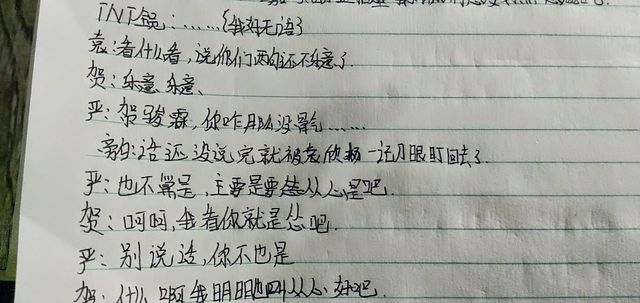 TNT锅：……(我好无语)
袁：看什么看，说你们两句还不乐意了.
贺：乐意、乐意、
严：贺骏霖，你咋那么没骨气……
旁白：话还没说完就被袁欣杨一记刀眼盯回去了.
严：也不常是，主要是要怂从心是吧.
贺：呵呵，我看你就是怂吧.
严：别说话，你不也是
贺：什么啊我明明也叫从心好吧.